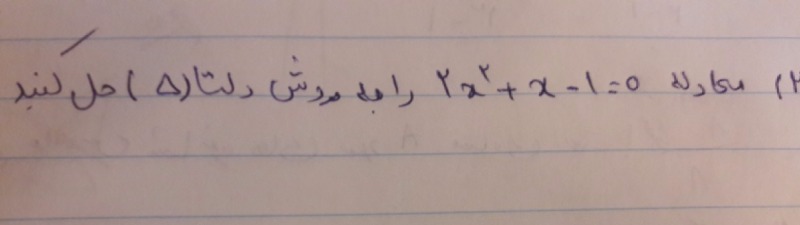 ۲) معادله ۲x²+x-۱=۰ را به روش دلتا (Δ) حل کنید